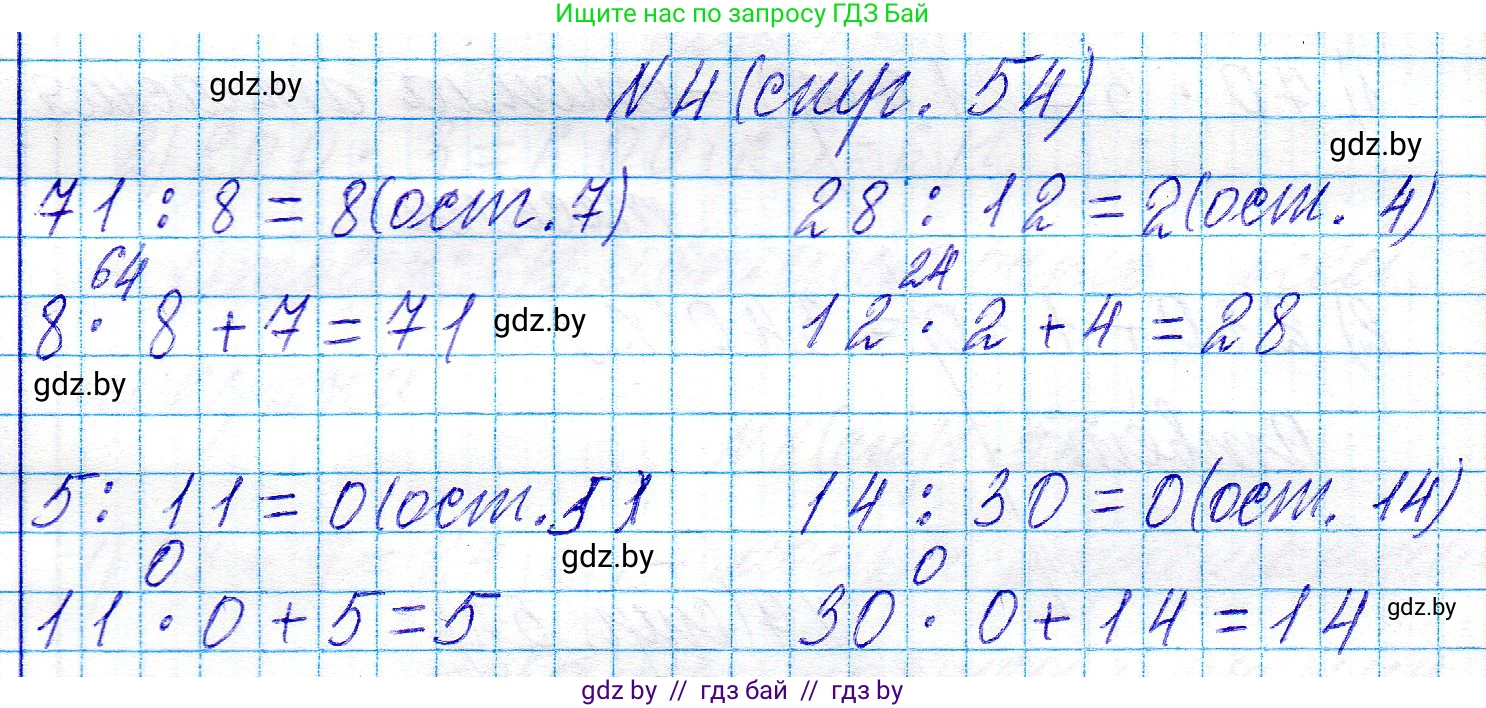 Ищите нас по запросу ГДЗ Бай
gdz.by
№4 (стр. 54)
gdz.by
71 : 8 = 8 (ост. 7) 28 : 12 = 2 (ост. 4)
64 24
8 · 8 + 7 = 71 gdz.by 12 · 2 + 4 = 28
gdz.by
5 : 11 = 0 (ост. 5) 14 : 30 = 0 (ост. 14)
gdz.by
0 0
11 · 0 + 5 = 5 30 · 0 + 14 = 14 gdz.by
gdz by // гдз бай // гдз by